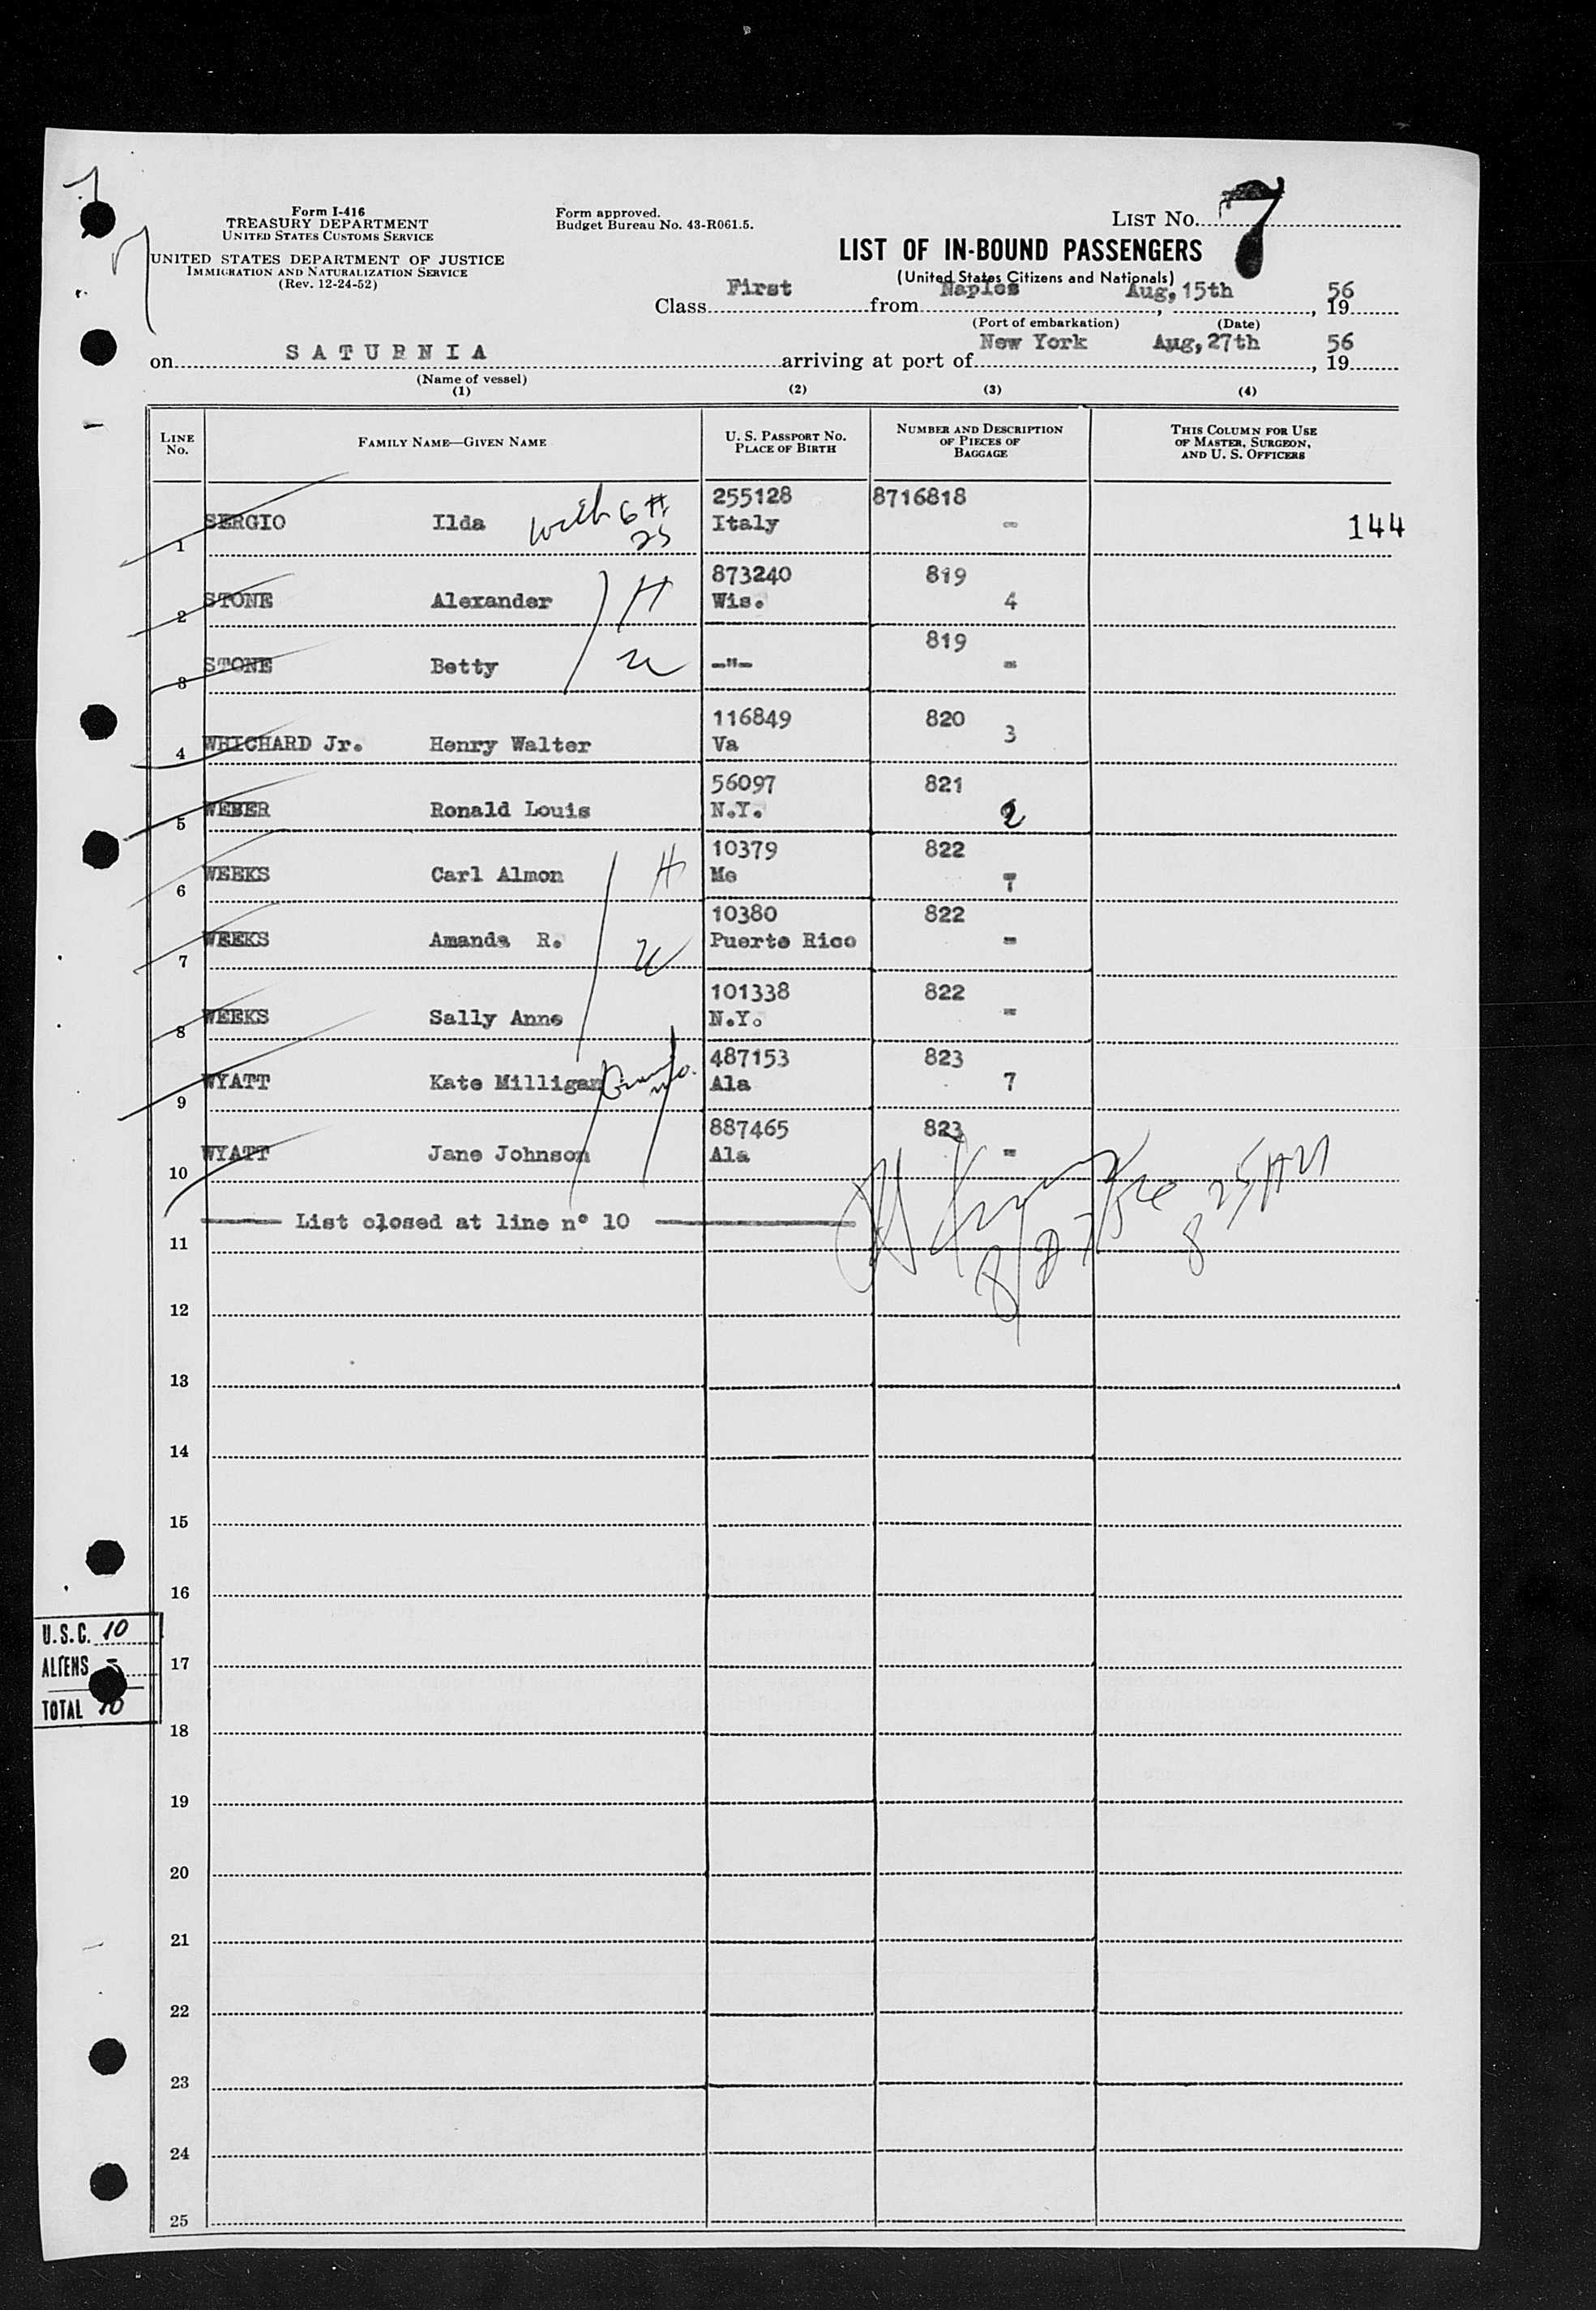 Form I-416
TREASURY DEPARTMENT
UNITED STATES CUSTOMS SERVICE
UNITED STATES DEPARTMENT OF JUSTICE
IMMIGRATION AND NATURALIZATION SERVICE
(Rev. 12-24-52)
Form approved.
Budget Bureau No. 43-R061.5.
LIST NO. 7
LIST OF IN-BOUND PASSENGERS
(United States Citizens and Nationals)
Class First from Naples, Aug, 15th, 1956
(Port of embarkation) (Date)
on SATURNIA arriving at port of New York Aug, 27th, 1956
(Name of vessel)
(1) (2) (3) (4)
LINE No. FAMILY NAME—GIVEN NAME U. S. PASSPORT NO. PLACE OF BIRTH NUMBER AND DESCRIPTION OF PIECES OF BAGGAGE THIS COLUMN FOR USE OF MASTER, SURGEON, AND U. S. OFFICERS
255128 8716818
1 SERGIO Ilda with 6 H 25 Italy - 144
873240 819
2 STONE Alexander H Wis. 4
819
3 STONE Betty W -"- -
116849 820
4 WHICHARD Jr. Henry Walter Va 3
56097 821
5 WEBER Ronald Louis N.Y. 2
10379 822
6 WEEKS Carl Almon H Me 7
10380 822
7 WEEKS Amanda R. W Puerto Rico -
101338 822
8 WEEKS Sally Anne N.Y. -
487153 823
9 WYATT Kate Milligan Ala 7
887465 823
10 WYATT Jane Johnson Ala -
List closed at line nº 10
11
12
13
14
15
16
U.S.C. 10
ALIENS
17
TOTAL 10
18
19
20
21
22
23
24
25